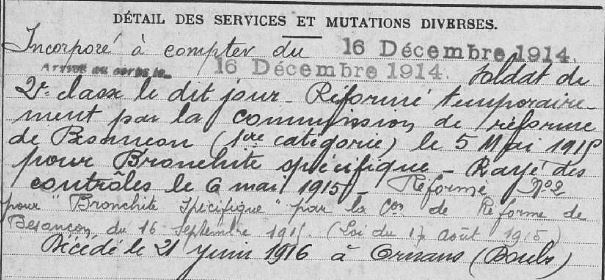 DÉTAIL DES SERVICES ET MUTATIONS DIVERSES.
Incorporé à compter du 16 Décembre 1914.
Arrivé au corps le 16 Décembre 1914. Soldat de
2e classe le dit jour _ Réformé temporaire-
ment par la commission de réforme
de Besançon (1ère catégorie) le 5 Mai 1915
pour Bronchite spécifique _ Rayé des
contrôles le 6 mai 1915 _ Réformé N°2
pour "Bronchite Spécifique" par la Con de Réforme de
Besançon, du 16 Septembre 1915. (Loi du 17 août 1915)
Décédé le 21 juin 1916 à Ornans (Doubs)